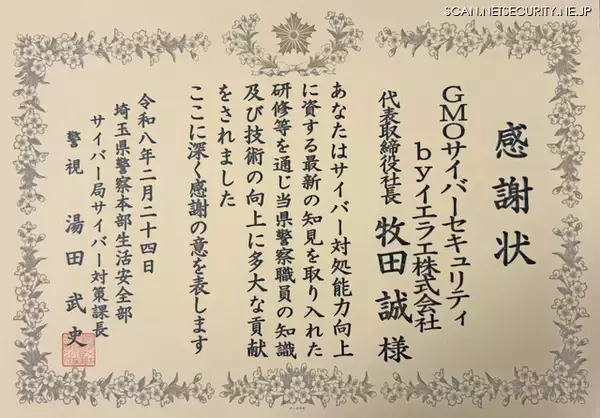 SCAN.NETSECURITY.NE.JP
感謝状
GMOサイバーセキュリティ
byイエラエ株式会社
代表取締役社長 牧田誠様
あなたはサイバー対処能力向上
に資する最新の知見を取り入れた
研修等を通じ当県警察職員の知識
及び技術の向上に多大な貢献
をされました
ここに深く感謝の意を表します
令和八年二月二十四日
埼玉県警察本部生活安全部
サイバー局サイバー対策課長
警視 湯田武史